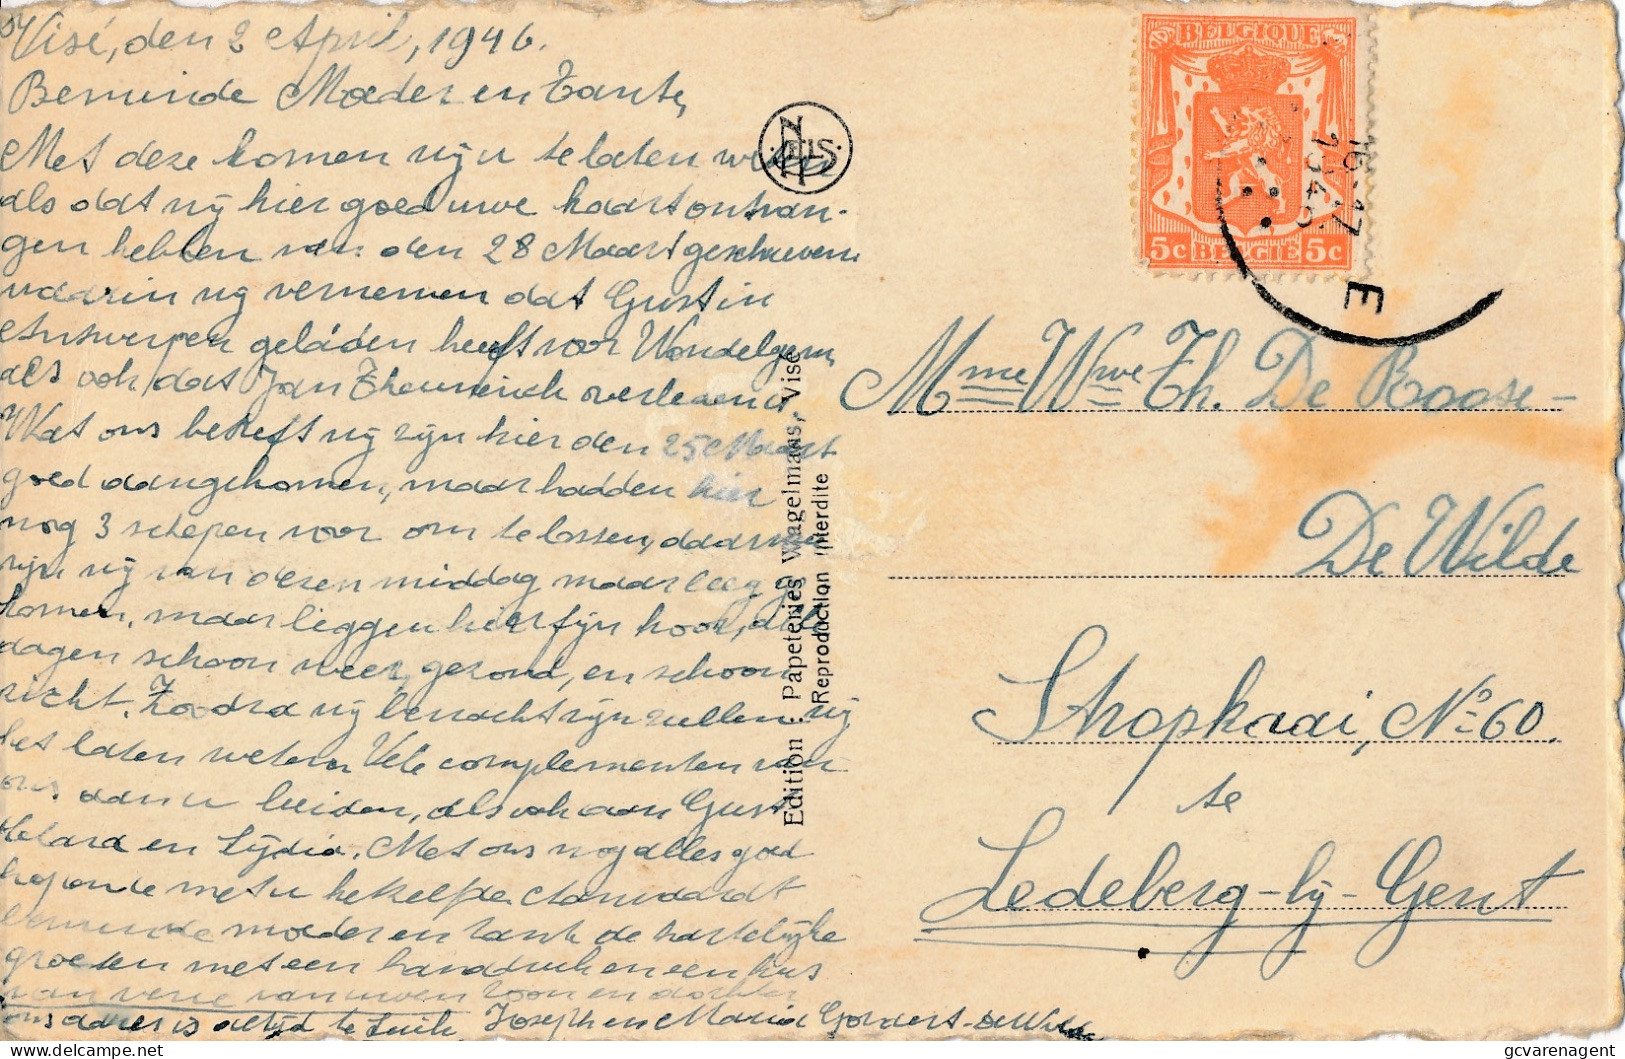 Visé, den 2 April, 1946.
Beminde Moeder en Tante,
Met deze komen wij u te laten weten
als dat wij hier goed uwe kaart ontvan-
gen hebben van den 28 Maart geschreven
waarin wij vernemen dat Gust in
Antwerpen geláden heeft voor Wondelgem,
als ook dat Jan
Wat ons betreft wij zijn hier den 25 Maart
goed aangekomen, maar hadden hier
nog 3 schepen voor om te lossen, daarmee
zijn wij van dezen middag maar leeg ge
komen, maar liggen hier fijn hoor, alle
dagen schoon weer, gezond, en schoon
zicht. Zoodra wij bevracht zijn zullen wij
het laten weten. Vele complementen van
ons aan u beiden, als ook aan Gust
Clara en Lydia. Met ons nog alles goed
hopende met u hetzelfde. Aanvaardt
beminde moeder en tante de hartelijke
groeten met een handdruk en een kus
van verre van uwen zoon en dochter
ons adres is altijd te Luik, Joseph en Maria Govaert-De Wilde
NELS
Edition : Papeteries Wagelmans, Visé
Reproduction interdite
BELGIQUE
5c BELGIE 5c
16-17
1946
E
Mme Wwe Th. De Roose-
De Wilde
Stropkaai, No 60.
te
Ledeberg-bij-Gent
delcampe.net
gcvarenagent